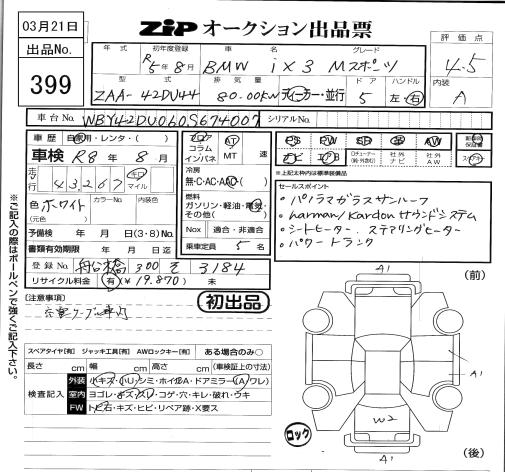 03月21日
ZIP オークション出品票
出品No.
399
年式 初年度登録 車名 グレード
R5年8月 BMW iX3 Mスポーツ
型式 排気量 ドア ハンドル
ZAA-42DU44 80.00KW ディーラー・並行 5 左・右
評価点
4.5
内装
A
車台No. WBY42DU0L0S674007 シリアルNo.
車歴 自家用・レンタ・( )
車検 R8年8月
走行 43,267 キロ マイル
色 ホワイト カラーNo. 内装色
(元色)
予備検 年 月 日(3・8)No.
書類有効期限 年 月 日迄
登録No. 船橋 300 そ 3184
リサイクル料金 有(¥19.870) 未
フロア コラム インパネ AT MT 速
冷房
無・C・AC・AAC・( )
燃料
ガソリン・軽油・電気・その他( )
Nox 適合・非適合
乗車定員 5 名
PS PW SR 革 AW
ナビ エアB Dチューナー(純・外含む) 社外ナビ 社外AW
新車時保証書
※上記太枠内は標準装備品
セールスポイント
・パノラマガラスサンルーフ
・harman/Kardonサウンドシステム
・シートヒーター. ステアリングヒーター
・パワートランク
初出品
〔注意事項〕
充電ケーブル
スペアタイヤ【有】 ジャッキ工具【有】 AWロックキー【有】 ある場合のみ○
長さ cm 幅 cm 高さ cm (車検証上の寸法)
検査記入
外装 小キズ・小ハシミ・ホイルA・ドアミラー(A ワレ)
室内 ヨゴレ・キズ・スレ・コゲ・穴・キレ・破れ・ウキ
FW トビ石・キズ・ヒビ・リペア跡・X要ス
ロック
A1
(前)
A1
W2
A1
(後)
※ご記入の際はボールペンで強くご記入下さい。